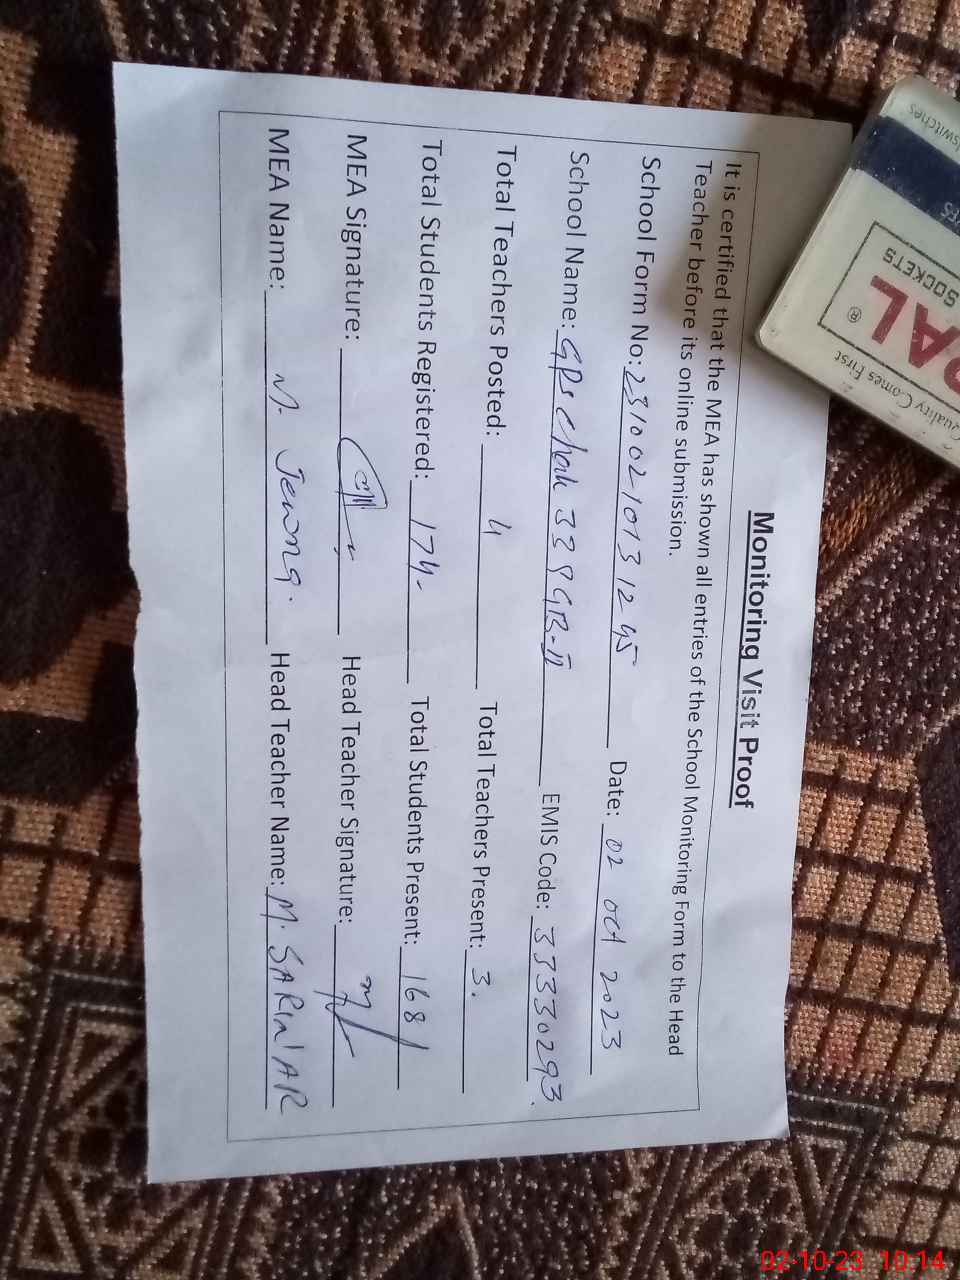 Monitoring Visit Proof
It is certified that the MEA has shown all entries of the School Monitoring Form to the Head
Teacher before its online submission.
School Form No: 231002101312 45 Date: 02 oct 2023
School Name: GPS chak 338 GB-II EMIS Code: 33330293.
Total Teachers Posted: 4 Total Teachers Present: 3.
Total Students Registered: 174. Total Students Present: 168
MEA Signature: Head Teacher Signature:
MEA Name: M. Head Teacher Name: M.
switches
SOCKETS
AL ®
Quality Comes First
02-10-23 10:14